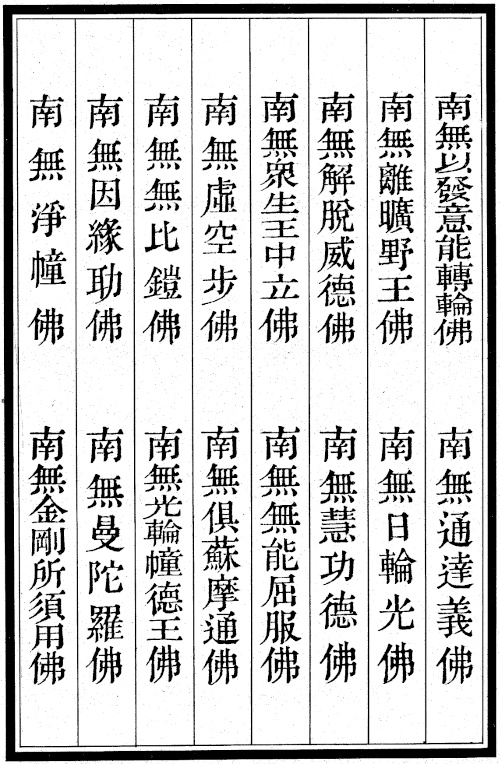 南無以發意能轉輪佛
南無通達義佛
南無離曠野王佛
南無日輪光佛
南無解脫威德佛
南無慧功德佛
南無眾生王中立佛
南無無能屈服佛
南無虛空步佛
南無俱蘇摩通佛
南無無比鎧佛
南無光輪幢德王佛
南無因緣助佛
南無曼陀羅佛
南無淨幢佛
南無金剛所須用佛